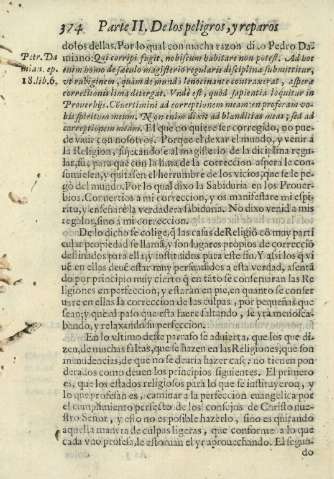 374 Parte II. De los peligros, y reparos
dolos dellas. Por lo qual con mucha razon dixo Pedro Da-
Petr. Da
miano: Qui corripi fugit, nobiscum habitare non potest. Ad hoc
mian. ep.
enim homo de sæculo magisterio regularis disciplinæ submittitur,
18. lib. 6.
vt rubiginem, quam de mundi lenocinante contraxerat, aspera
correctionis lima detergat. Vnde est, quod sapientia loquitur in
Prouerbijs. Conuertimini ad correptionem meam: en proferam vo-
bis spiritum meum. Non enim dixit ad blanditias meas; sed ad
correptionem meam. El que no quiere ser corregido, no pue-
de viuir con nosotros. Porque el dexar el mundo, y venir a
la Religion, sujetandose al magisterio de la diciplina regu-
lar, fue, para que con la lima de la correccion aspera le con-
sumiesen, y quitasen el herrumbre de los vicios, que se le pe-
gò del mundo. Por lo qual dixo la Sabiduria en los Prouer-
bios. Conuertios a mi correccion, y os manifestare mi espi-
ritu, y enseñaré la verdadera sabiduria. No dixo venid a mis
regalos, sino à mi correccion.
De lo dicho se colige, q̃ las casas de Religiõ cõ muy parti
cular propiedad se llamã, y son lugares propios de correcciõ
destinados para ella; y instituidos para este fin. Y assi los q̃ vi
uẽ en ellas deuẽ estar muy persuadidos a esta verdad, asentã
do por principio muy cierto q̃ en esto se conseruaran las Re
ligiones en perfeccion, y estaràn en pie, en quanto se conser
uare en ellas la correccion de las culpas, por pequeñas que
sean; y que al paso que esta fuere faltando, se yrá menosca-
bando, y relaxando su perfeccion.
En lo vltimo deste parrafo se aduierta, que los que di-
zen, de muchas faltas, que se hazen en las Religiones, que son
menudencias, de que no se deuria hazer caso; no tienen pon
derados como deuen los principios siguientes. El primero
es, que los estados religiosos para lo que se instituyeron, y
lo que profesan es, caminar a la perfeccion euangelica por
el cumplimiento perfecto de los consejos de Christo nue-
stro Señor, y esto no es posible hazerlo, sino es quitando
aquella manera de culpas ligeras, que conforme a lo que
cada vno profesa, le estoruan el yr aprouechando. El segun-
do